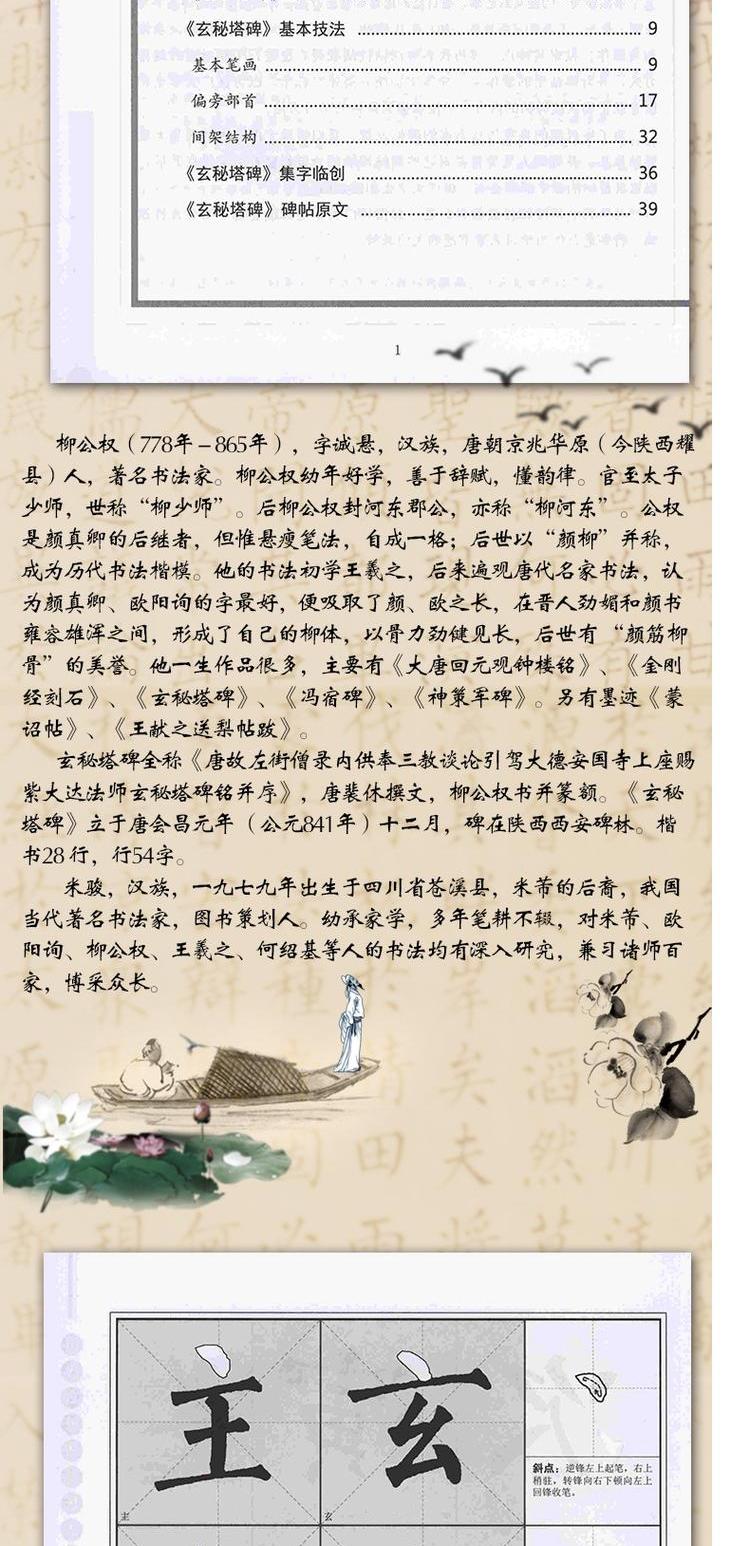 《玄秘塔碑》基本技法 ........ 9
基本笔画 ........ 9
偏旁部首 ........ 17
间架结构 ........ 32
《玄秘塔碑》集字临创 ........ 36
《玄秘塔碑》碑帖原文 ........ 39
1
柳公权（778年－865年），字诚悬，汉族，唐朝京兆华原（今陕西耀
县）人，著名书法家。柳公权幼年好学，善于辞赋，懂韵律。官至太子
少师，世称“柳少师”。后柳公权封河东郡公，亦称“柳河东”。公权
是颜真卿的后继者，但惟悬瘦笔法，自成一格；后世以“颜柳”并称，
成为历代书法楷模。他的书法初学王羲之，后来遍观唐代名家书法，认
为颜真卿、欧阳询的字最好，便吸取了颜、欧之长，在晋人劲媚和颜书
雍容雄浑之间，形成了自己的柳体，以骨力劲健见长，后世有“颜筋柳
骨”的美誉。他一生作品很多，主要有《大唐回元观钟楼铭》、《金刚
经刻石》、《玄秘塔碑》、《冯宿碑》、《神策军碑》。另有墨迹《蒙
诏帖》、《王献之送梨帖跋》。
玄秘塔碑全称《唐故左街僧录内供奉三教谈论引驾大德安国寺上座赐
紫大达法师玄秘塔碑铭并序》，唐裴休撰文，柳公权书并篆额。《玄秘
塔碑》立于唐会昌元年（公元841年）十二月，碑在陕西西安碑林。楷
书28行，行54字。
米骏，汉族，一九七九年出生于四川省苍溪县，米芾的后裔，我国
当代著名书法家，图书策划人。幼承家学，多年笔耕不辍，对米芾、欧
阳询、柳公权、王羲之、何绍基等人的书法均有深入研究，兼习诸师百
家，博采众长。
主 玄
斜点：逆锋左上起笔，右上
稍驻，转锋向右下顿向左上
回锋收笔。
主 玄